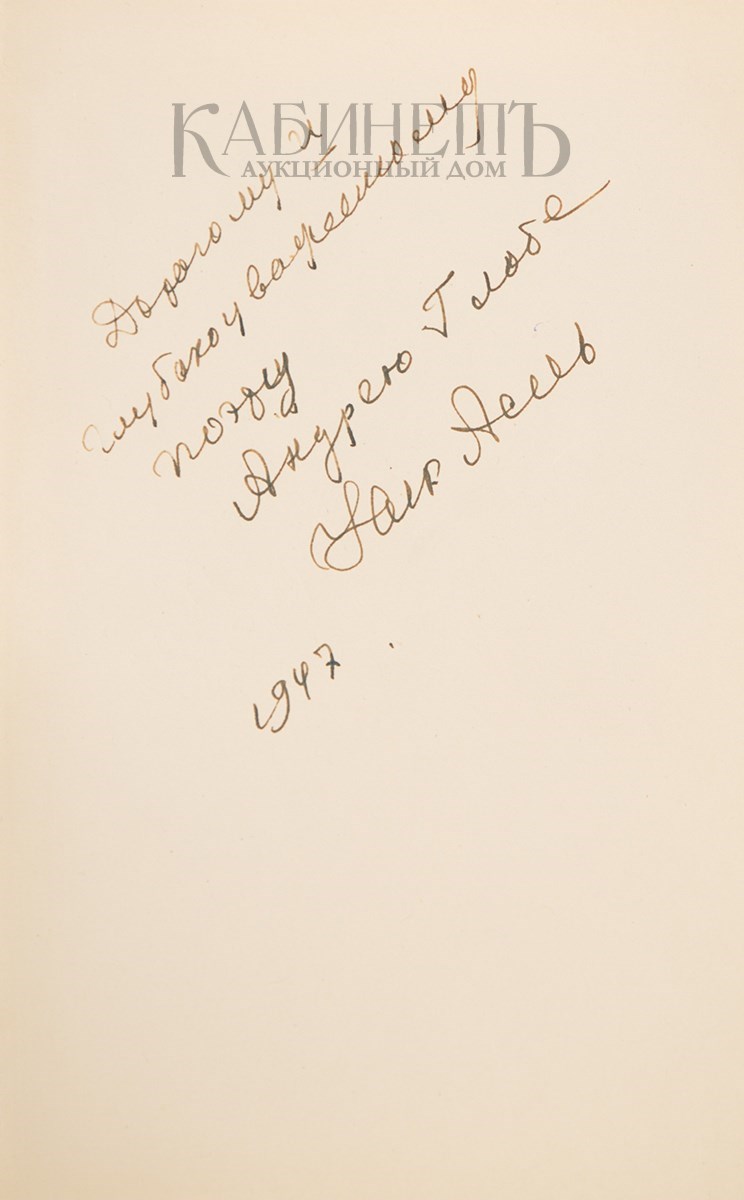 КАБИНЕТЪ
АУКЦИОННЫЙ ДОМ
Дорогому и
глубокоуважаемому
поэту
Андрею Глобе
Ник Асеев
1947